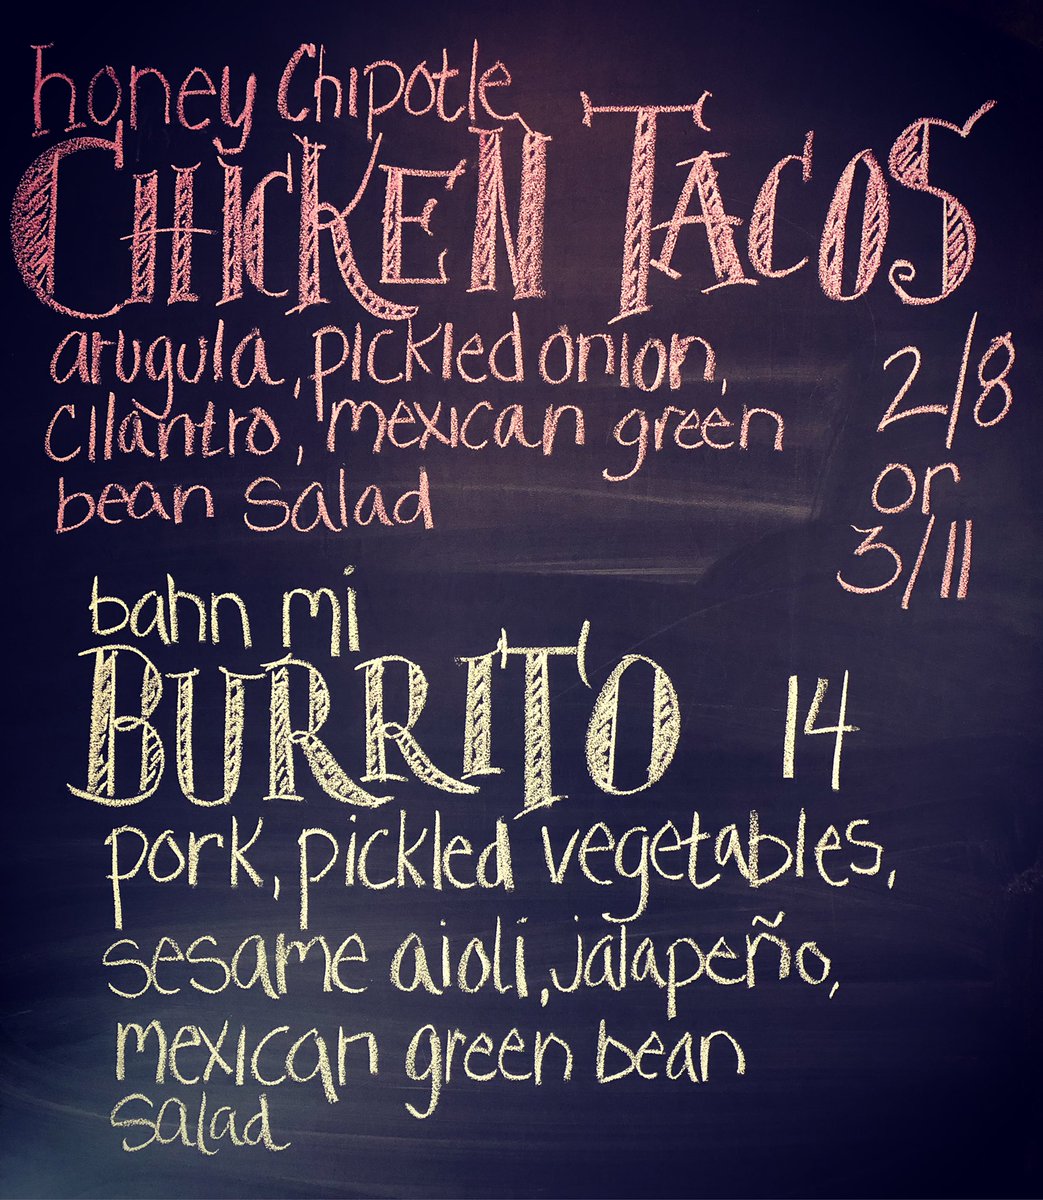 honey Chipotle
CHICKEN TACOS
arugula, pickled onion,
cilantro, mexican green
bean salad
2/8
or
3/11
bahn mi
BURRITO 14
pork, pickled vegetables,
sesame aioli, jalapeño,
mexican green bean
salad